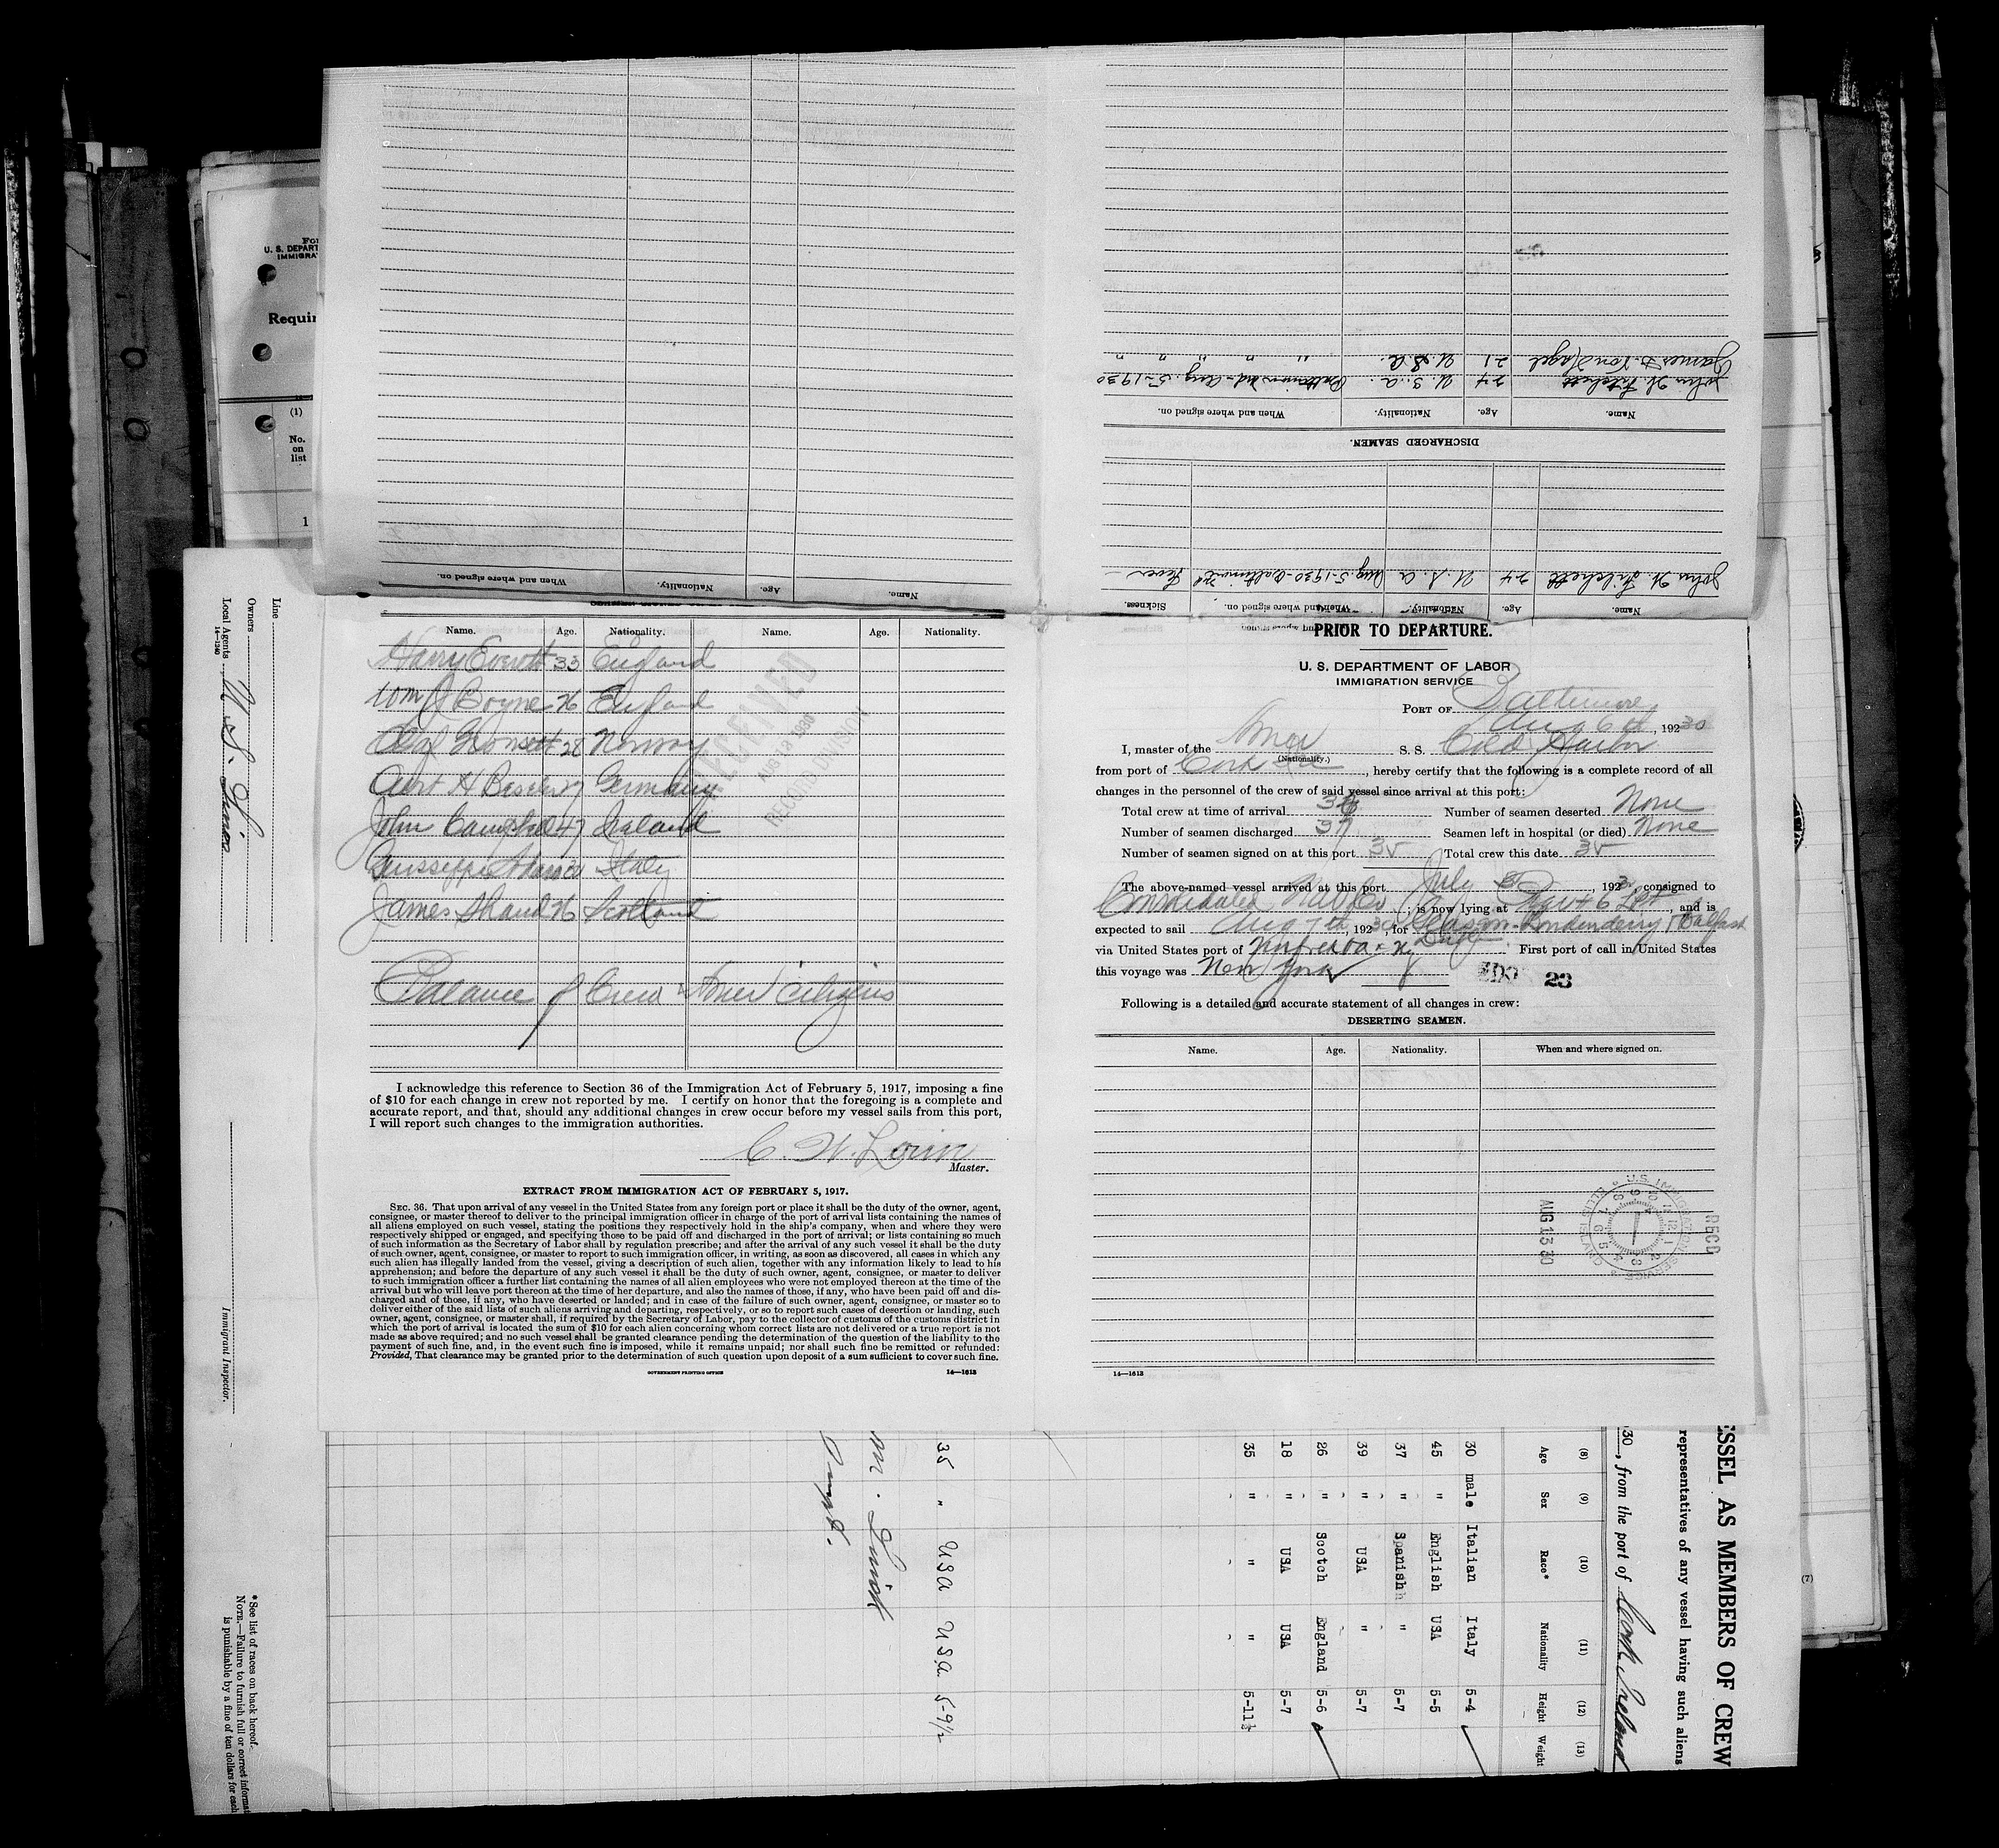 U. S. DEPART
IMMIGRA
Requir
(1)
No.
on
list
1
Name. Age. Nationality. When and where signed on.
DISCHARGED SEAMEN.
Name. Age. Nationality. When and where signed on.
John W. 24 U. S. A. Aug. 5-1930
James D. Von Nagel 21 U. S. A. " " " "
Name. Age. Nationality. When and where signed on. Sickness.
John W. 24 U. S. A Aug. 5-1930-Baltimore Md Fever
Line
Owners
Local Agents
14—1240
Immigrant Inspector.
* See list of races on back hereof.
NOTE.—Failure to furnish full or correct informat
is punishable by a fine of ten dollars for each
Name. Age. Nationality. Name. Age. Nationality.
Harry Everett 33 England
Wm J Boyne 26 England
Olaf 28 Norway
H Germany
John Campbell 47 Ireland
Italy
James Shand 26 Scotland
Balance of Crew Amer Citizens
RECEIVED
AUG 18 1930
RECORD DIVISION
I acknowledge this reference to Section 36 of the Immigration Act of February 5, 1917, imposing a fine
of $10 for each change in crew not reported by me. I certify on honor that the foregoing is a complete and
accurate report, and that, should any additional changes in crew occur before my vessel sails from this port,
I will report such changes to the immigration authorities.
C. W.
Master.
EXTRACT FROM IMMIGRATION ACT OF FEBRUARY 5, 1917.
SEC. 36. That upon arrival of any vessel in the United States from any foreign port or place it shall be the duty of the owner, agent,
consignee, or master thereof to deliver to the principal immigration officer in charge of the port of arrival lists containing the names of
all aliens employed on such vessel, stating the positions they respectively hold in the ship's company, when and where they were
respectively shipped or engaged, and specifying those to be paid off and discharged in the port of arrival; or lists containing so much
of such information as the Secretary of Labor shall by regulation prescribe; and after the arrival of any such vessel it shall be the duty
of such owner, agent, consignee, or master to report to such immigration officer, in writing, as soon as discovered, all cases in which any
such alien has illegally landed from the vessel, giving a description of such alien, together with any information likely to lead to his
apprehension; and before the departure of any such vessel it shall be the duty of such owner, agent, consignee, or master to deliver
to such immigration officer a further list containing the names of all alien employees who were not employed thereon at the time of the
arrival but who will leave port thereon at the time of her departure, and also the names of those, if any, who have been paid off and dis-
charged and of those, if any, who have deserted or landed; and in case of the failure of such owner, agent, consignee, or master so to
deliver either of the said lists of such aliens arriving and departing, respectively, or so to report such cases of desertion or landing, such
owner, agent, consignee, or master shall, if required by the Secretary of Labor, pay to the collector of customs of the customs district in
which the port of arrival is located the sum of $10 for each alien concerning whom correct lists are not delivered or a true report is not
made as above required; and no such vessel shall be granted clearance pending the determination of the question of the liability to the
payment of such fine, and, in the event such fine is imposed, while it remains unpaid; nor shall such fine be remitted or refunded:
Provided, That clearance may be granted prior to the determination of such question upon deposit of a sum sufficient to cover such fine.
GOVERNMENT PRINTING OFFICE 14—1613
PRIOR TO DEPARTURE.
U. S. DEPARTMENT OF LABOR
IMMIGRATION SERVICE
PORT OF Baltimore
Aug 6th, 1930
I, master of the Amer S. S. Cold Harbor
(Nationality.)
from port of Cork Ire, hereby certify that the following is a complete record of all
changes in the personnel of the crew of said vessel since arrival at this port:
Total crew at time of arrival Number of seamen deserted None
Number of seamen discharged 37 Seamen left in hospital (or died) None
Number of seamen signed on at this port 35 Total crew this date 35
The above-named vessel arrived at this port July, 193, consigned to
Consolidated Nav Co, is now lying at, and is
expected to sail Aug 7th, 1930, for Glasgow-Londonderry Belfast
via United States port of First port of call in United States
this voyage was New York
23
Following is a detailed and accurate statement of all changes in crew:
DESERTING SEAMEN.
Name. Age. Nationality. When and where signed on.
RECD
U.S. IMMIGRATION SERVICE
ELLIS ISLAND
AUG 13 30
14—1613
ESSEL AS MEMBERS OF CREW
representatives of any vessel having such aliens
30, from the port of Cork Ireland
(7)
(8) (9) (10) (11) (12) (13)
Age Sex Race* Nationality Height Weight
30 male Italian Italy 5-4
45 " English USA 5-5
37 " Spanish " 5-7
39 " USA " 5-7
26 " Scotch England 5-6
18 " USA USA 5-7
35 " " " 5-11½
35 " USA USA 5-9½